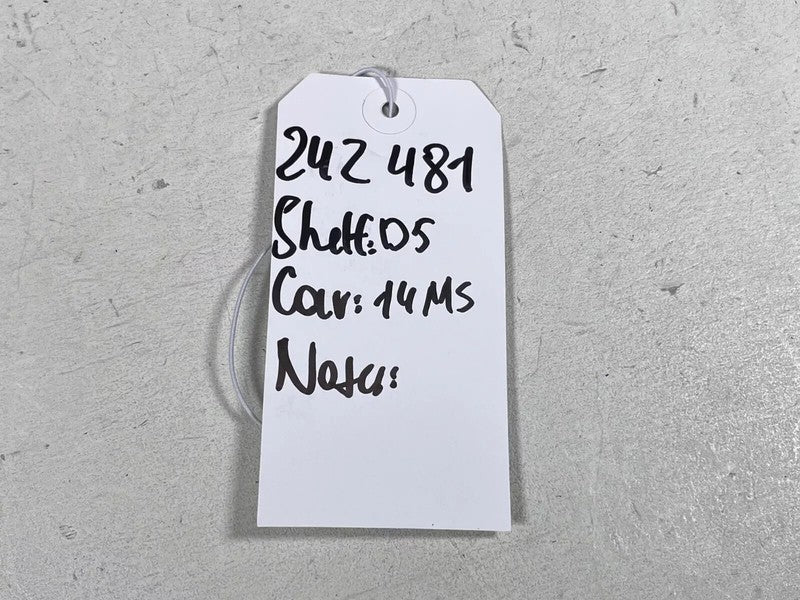 242 481
Shelf: D5
Car: 14MS
Nota: